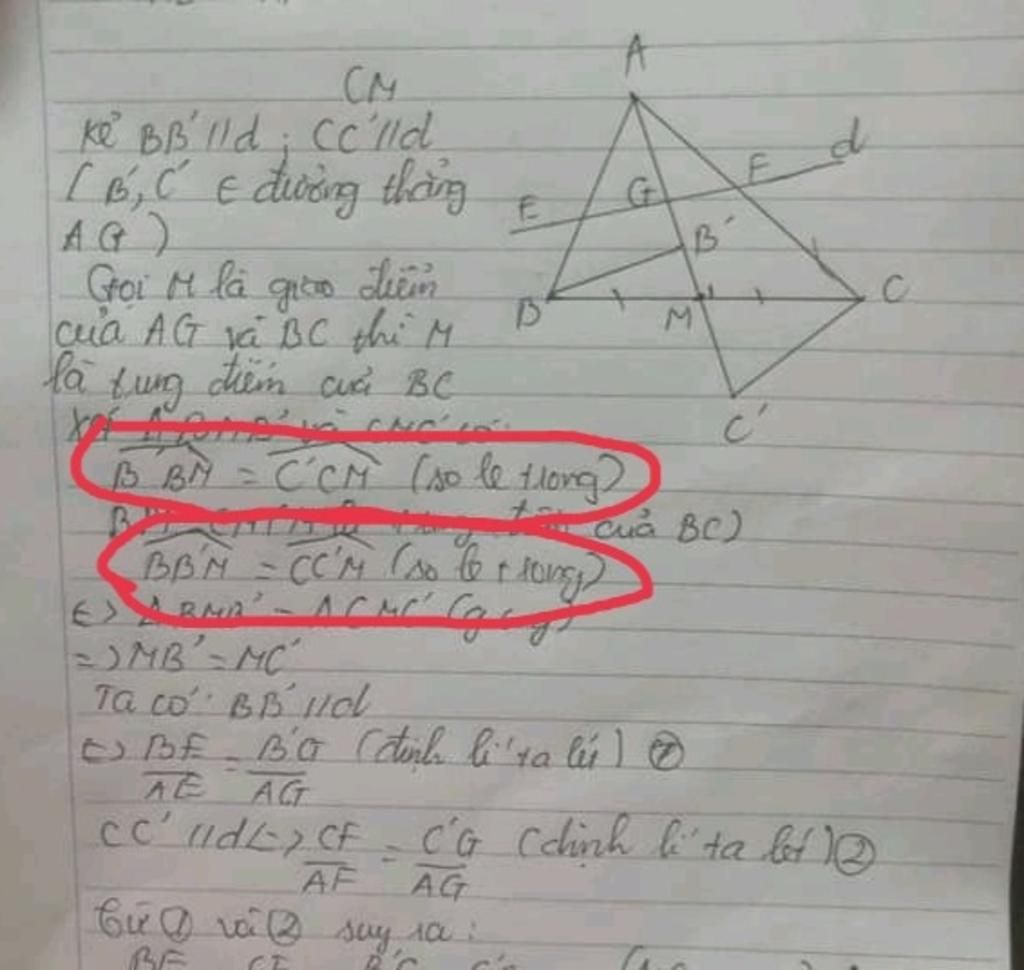 CM
Kẻ BB'//d ; CC'//d
( B', C' ∈ đường thẳng
AG )
Gọi M là giao điểm
của AG và BC thì M
là trung điểm của BC
Xét Δ BMB' và CMC' có:
B'BM = C'CM (so le trong)
BM = CM (M là trung điểm của BC)
BB'M = CC'M (so le trong)
=> Δ BMB' = Δ CMC' (g.c.g)
=> MB' = MC'
Ta có: BB'//d
=> BE/AE = B'G/AG (định lí ta lét) ①
CC'//d => CF/AF = C'G/AG (định lí ta lét) ②
Từ ① và ② suy ra:
BE CF B'G C'G
A
d
F
G
E
B'
C
B
M
C'